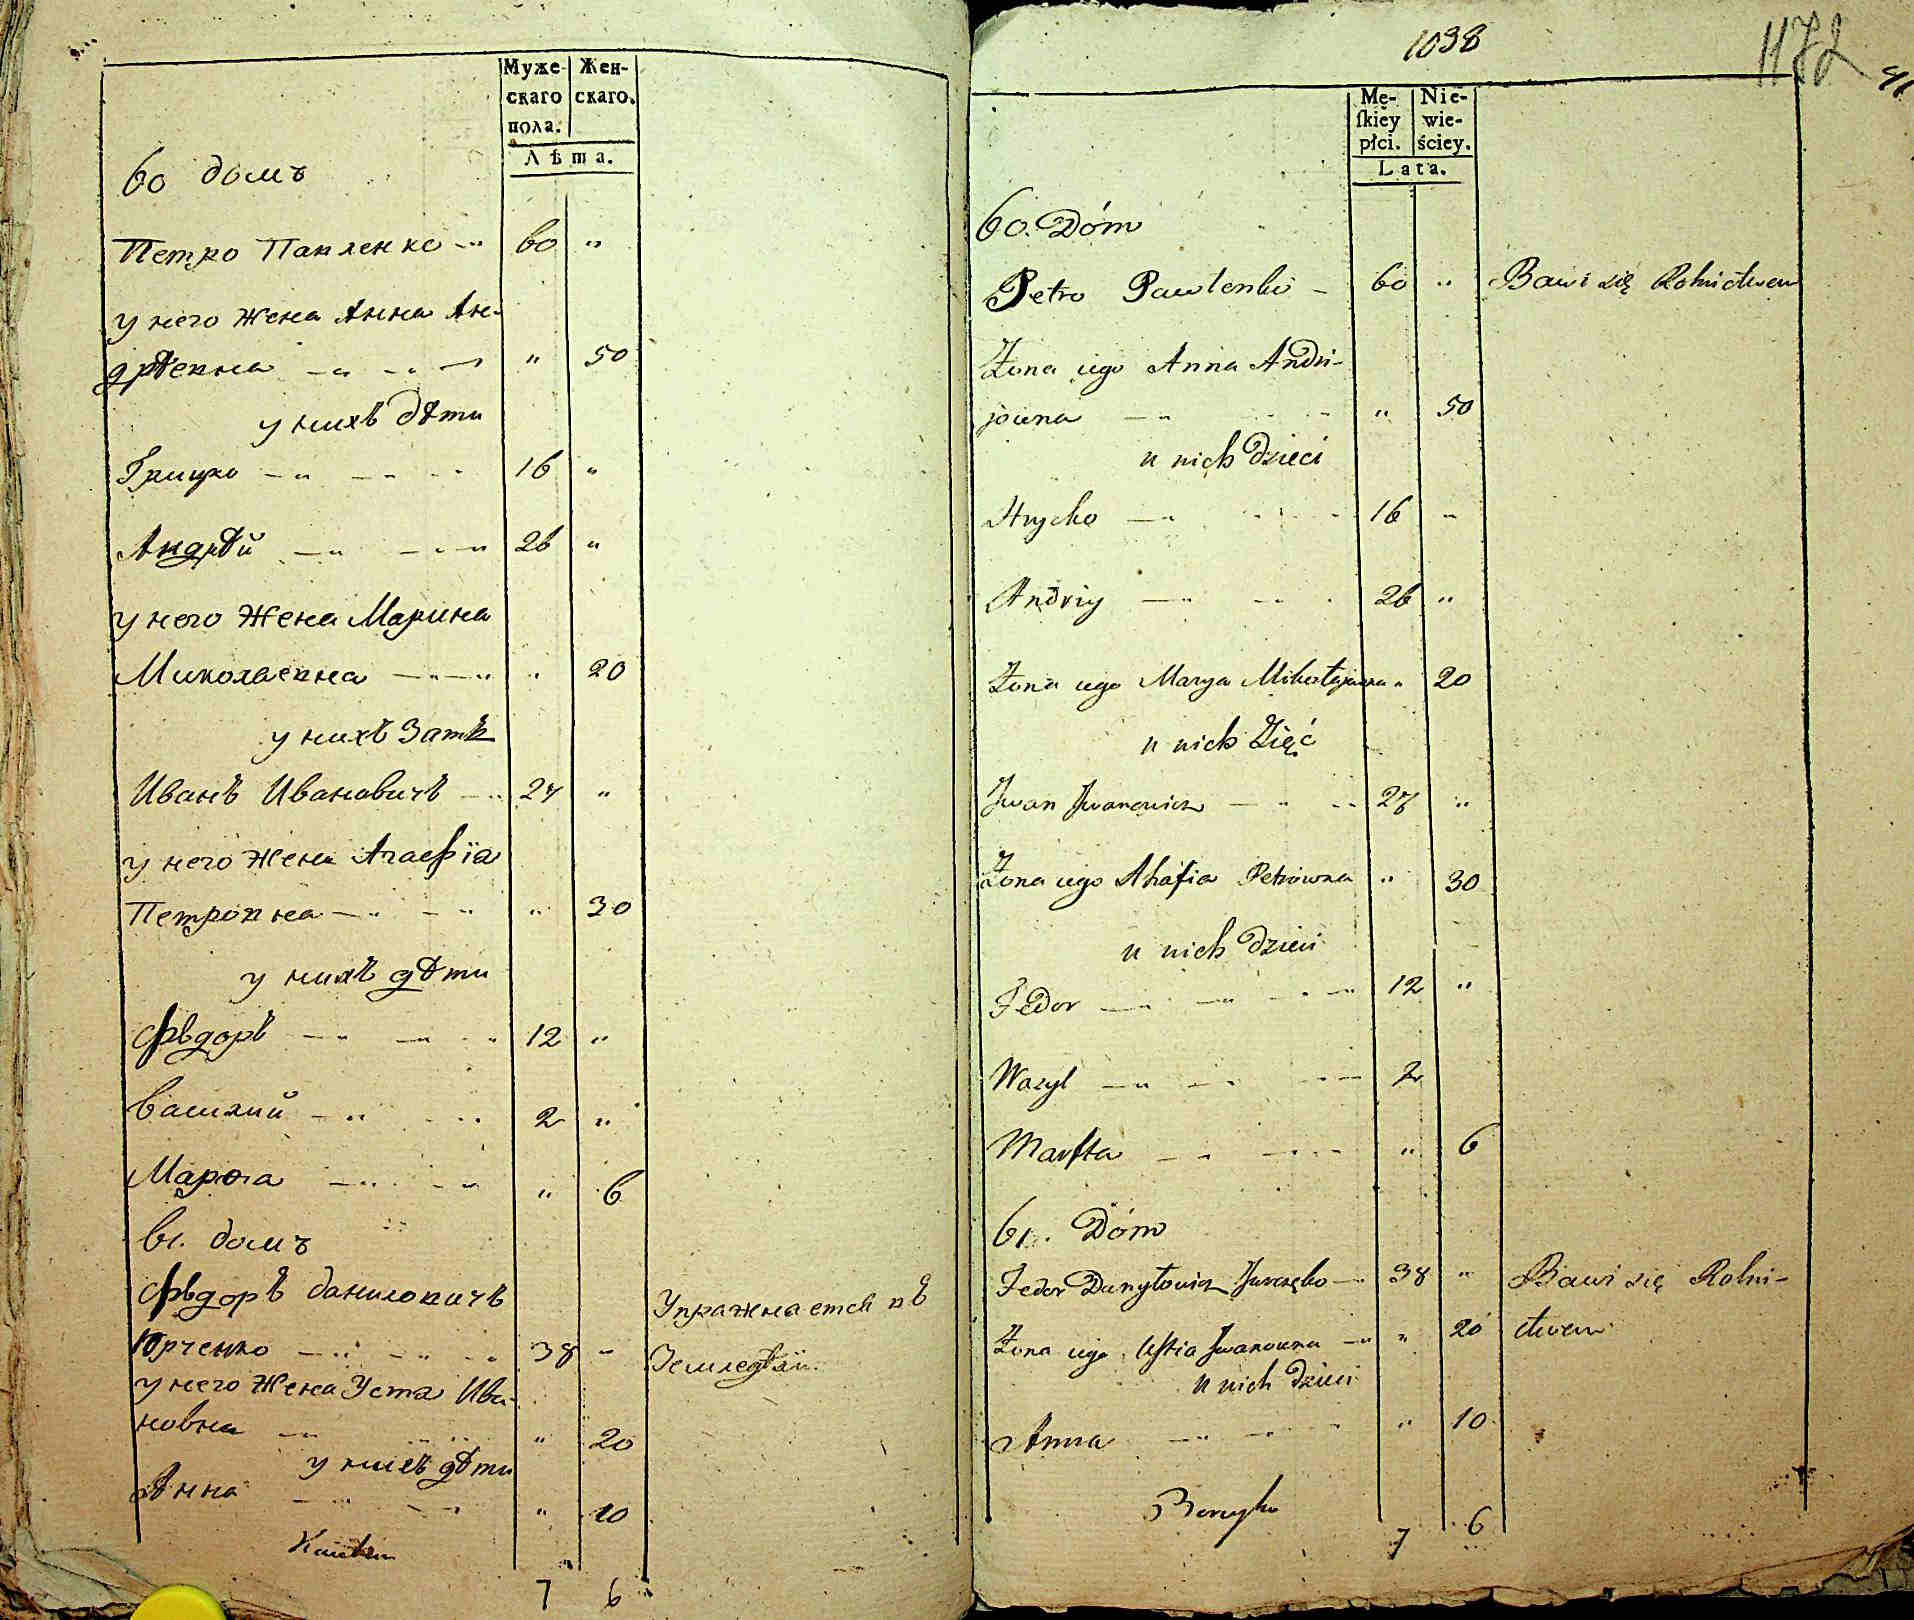 Муже- Жен-
скаго скаго.
пола.
Лѣта.
60 домъ
Петро Павленко 60 "
у него жена Анна Ан-
дрѣевна " 50
у нихъ дѣти
Грицко 16 "
Андрѣй 26 "
у него жена Марина
Миколаевна " 20
у нихъ Зать
Иванъ Ивановичъ 27 "
у него жена Агафіа
Петровна " 30
у нихъ дѣти
Фѣдоръ 12 "
Василий 2 "
Марѳа " 6
61. домъ
Фѣдоръ Даниловичъ
Юрченко 38 " Упражнается въ
у него жена Уста Ива- Земледѣли
новна " 20
у нихъ дѣти
Анна " 10
7 6
1098
1172
Mę- Nie-
ſkiey wie-
płci. ściey.
Lata.
60. Dóm
Petro Pawlenko 60 " Bawi się Rolnictwem
Żona iego Anna Andri-
jowna " 50
u nich dzieci
Hrycko 16 "
Andriy 26 "
Żona iego Marya Mikołajowna " 20
u nich Zięć
Iwan Iwanowicz 27 "
Żona iego Ahafia Petrowna " 30
u nich dzieci
Fedor 12 "
Wasyl 2
Marfta " 6
61. Dóm
Fedor Danyłowicz Jurczęko 38 " Bawi się Rolni-
Żona iego Uſtia Iwanowna " 20 ctwem
u nich dzieci
Anna " 10
7 6